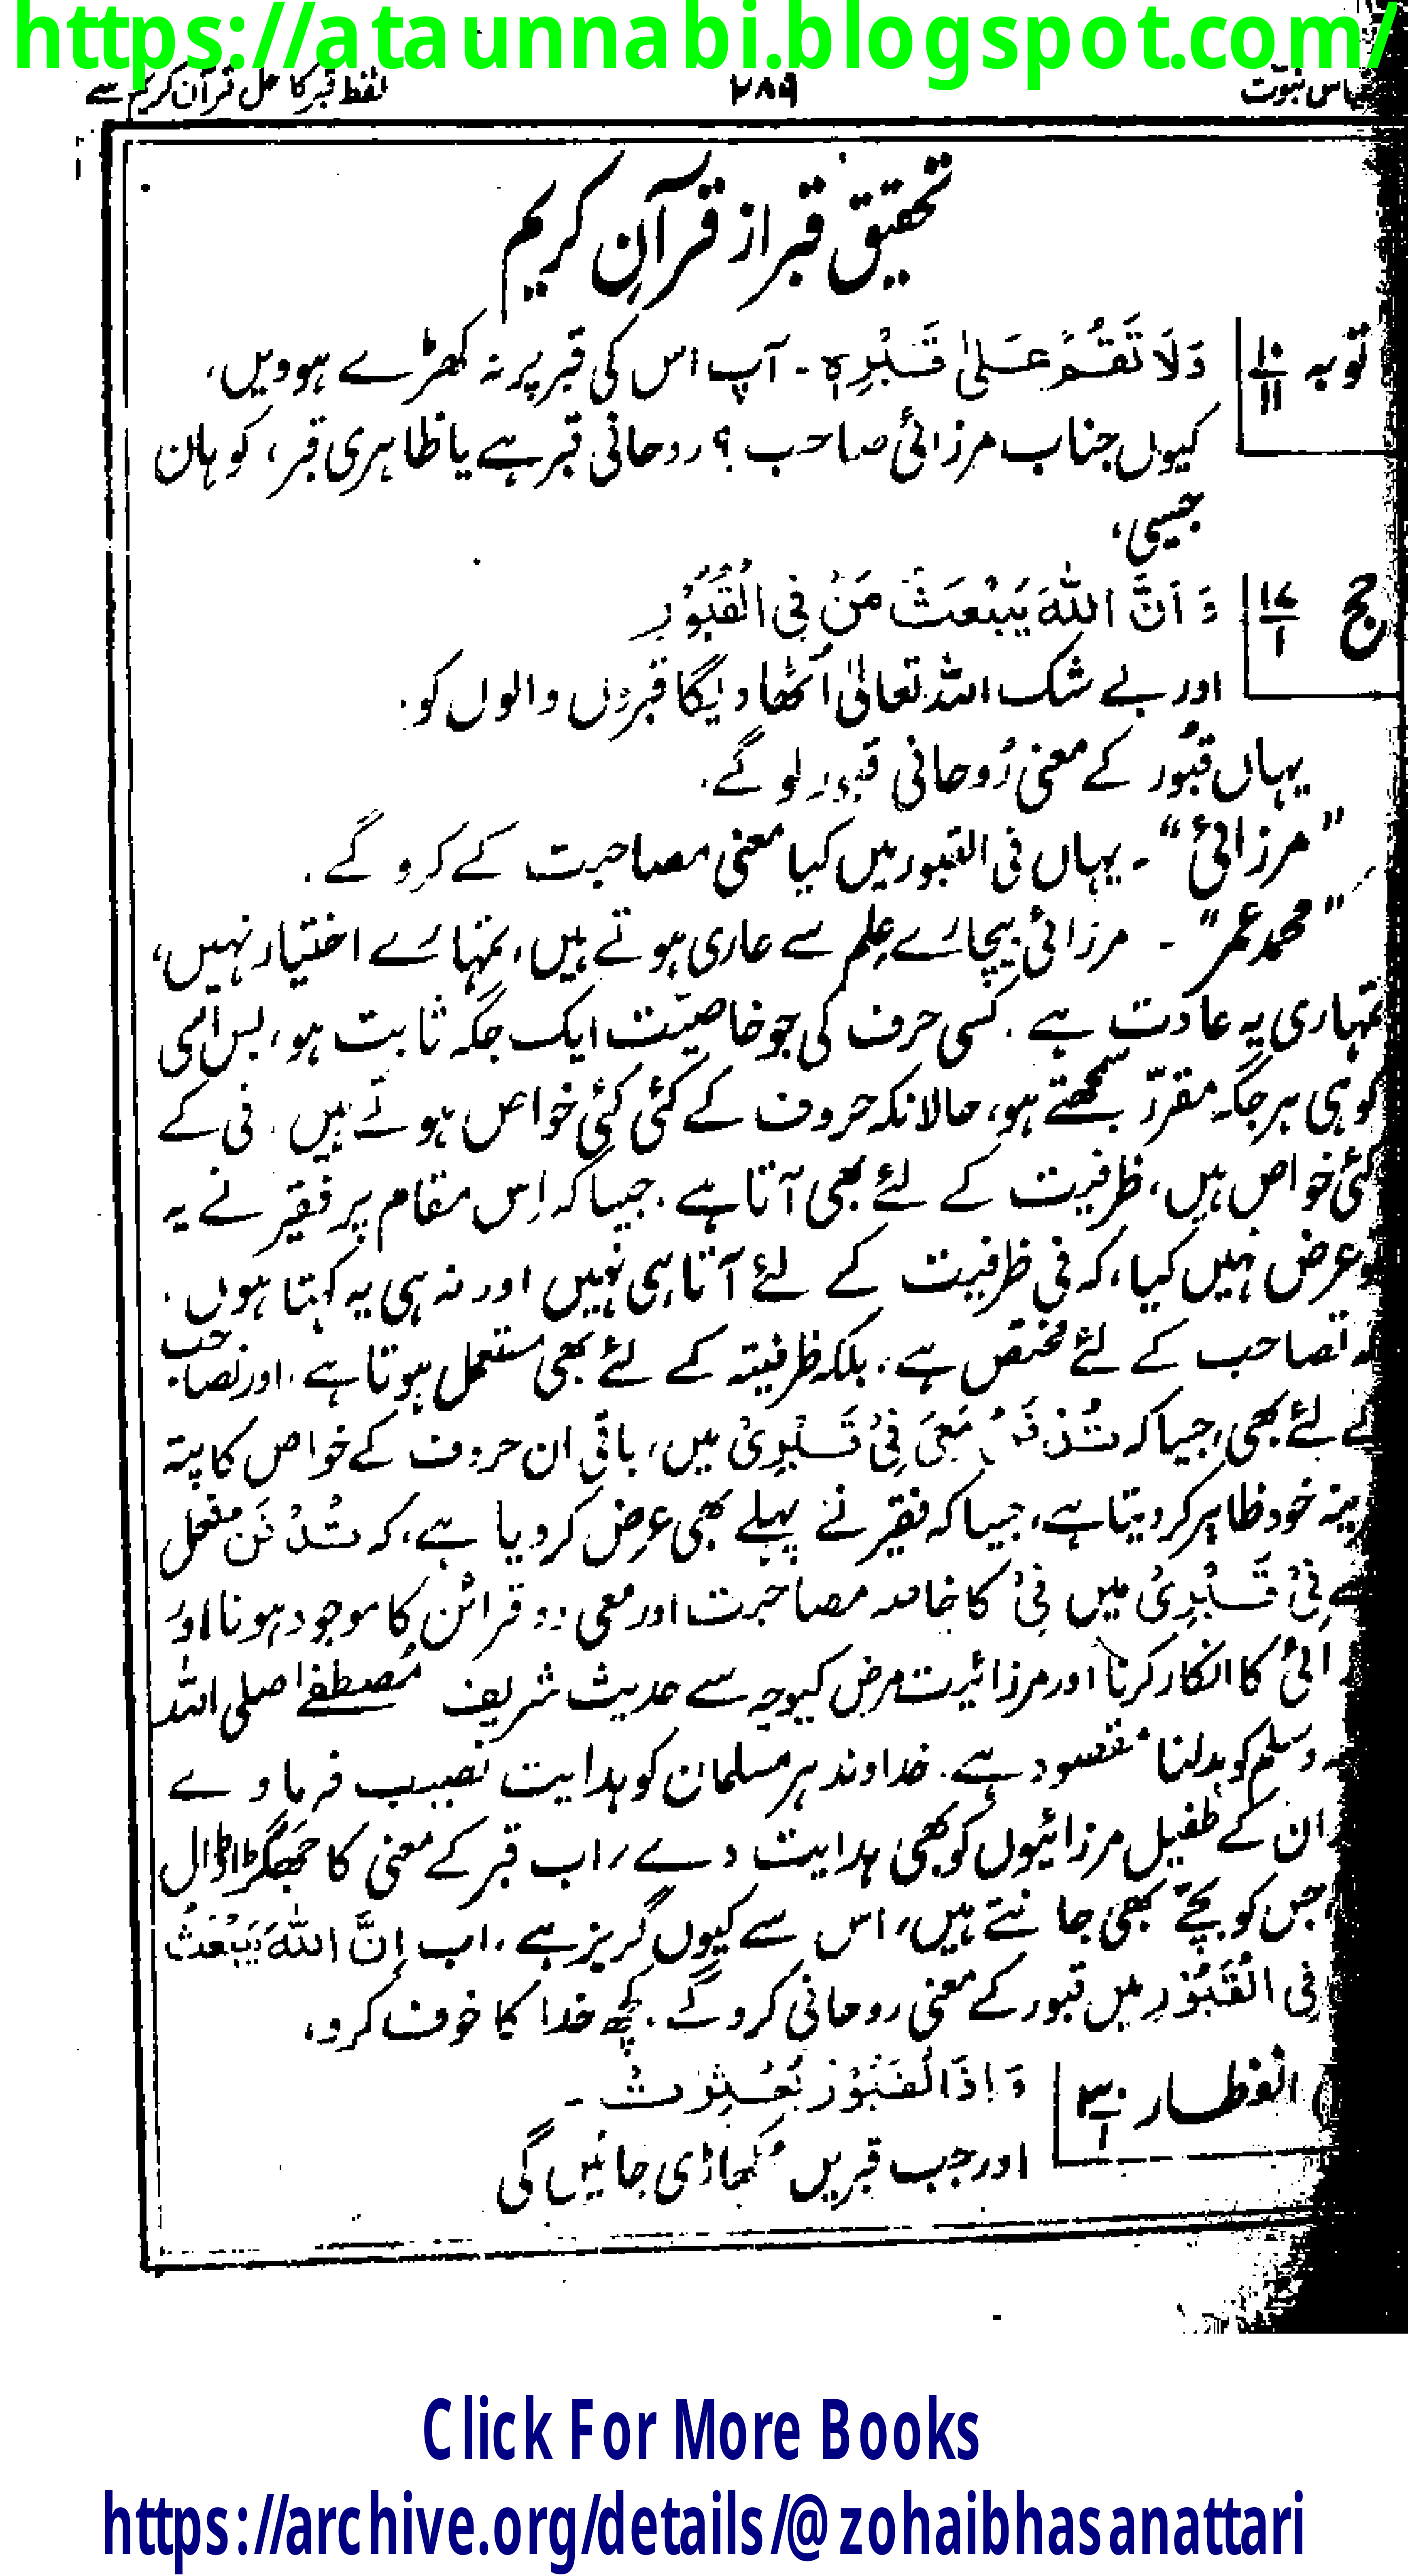 https://ataunnabi.blogspot.com/
یاس نبوّت ۲۸۹ لفظ قبر کا حل قرآن کریم سے
تحقیق قبر از قرآنِ کریم
توبہ ۱۰/۱۱ وَلَا تَقُمْ عَلیٰ قَبْرِہٖ ۔ آپ اس کی قبر پر نہ کھڑے ہوویں،
کیوں جناب مرزائی صاحب ؟ روحانی قبر ہے یا ظاہری قبر، کوہان
جیسی،
حج ۱۷/۱ وَ اَنَّ اللہَ یَبْعَثُ مَنْ فِی الْقُبُوْرِ
اور بے شک اللہ تعالیٰ اُٹھا دیگا قبروں والوں کو.
یہاں قبُور کے معنی رُوحانی قبور لو گے.
”مرزائی“ ۔ یہاں فی القبور میں کیا معنی مصاحبت کے کرو گے .
”محمد عمر“ ۔ مرزائی بیچارے عِلم سے عاری ہوتے ہیں، تمہارے اختیار نہیں،
تمہاری یہ عادت ہے . کسی حرف کی جو خاصیّت ایک جگہ ثابت ہو، بس اُسی
کو ہی ہر جگہ مقررّ سمجھتے ہو، حالانکہ حروف کے کئی کئی خواص ہوتے ہیں . فی کے
کئی خواص ہیں، ظرفیت کے لئے بھی آتا ہے . جیسا کہ اِس مقام پر فقیر نے یہ
تو عرض نہیں کیا، کہ فی ظرفیت کے لئے آتا ہی نہیں اور نہ ہی یہ کہتا ہوں .
کہ تصاحب کے لئے مختص ہے . بلکہ ظرفیتہ کے لئے بھی مستعمل ہوتا ہے . اور تصاحب
کے لئے بھی، جیسا کہ تُدْفَنُ مَعِیَ فِیْ قَبْرِیْ میں، باقی ان حروف کے خواص کا پتہ
قرینہ خود ظاہر کر دیتا ہے، جیسا کہ فقیر نے پہلے بھی عرض کر دیا ہے، کہ تُدْفَنُ مفعل
فِیْ قَبْرِیْ میں فِیْ کا خاصہ مصاحبت اور معی دو قرائن کا موجود ہونا اور
کا انکار کرنا اور مرزائیت مرض کیوجہ سے حدیث شریف مُصطفےٰ صلی اللہ
وسلم کو بدلنا مقصود ہے . خداوند ہر مسلمان کو ہدایت نصیب فرماوے
ان کے طفیل مرزائیوں کو بھی ہدایت دے، اب قبر کے معنی کا جھگڑا ڈال
جس کو بچّے بھی جانتے ہیں، اس سے کیوں گریز ہے . اب اِنَّ اللہَ یَبْعَثُ
فِی الْقُبُوْرِ میں قبور کے معنی روحانی کرو گے . کچھ خدا کا خوف کرو،
انفطار ۳۰/۱ وَ اِذَا الْقُبُوْرُ بُعْثِرَتْ ۔
اور جب قبریں اُکھاڑی جائیں گی
Click For More Books
https://archive.org/details/@zohaibhasanattari